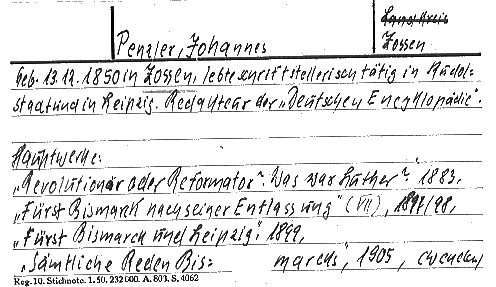 Landkreis
Penzler, Johannes
Zossen
Geb. 13.12.1850 in Zossen, lebte schriftstellerisch tätig in Rudol-
stadt und in Leipzig. Redakteur der „Deutschen Encyklopädie".
Hauptwerke:
„Revolutionär oder Reformator". Was war Luther?" 1883,
„Fürst Bismarck nach seiner Entlassung" (VII), 1897/98,
„Fürst Bismarck und Leipzig". 1899,
„Sämtliche Reden Bis= marcks", 1905,
Reg. 10. Stichnote. 1. 50. 232 000. A. 803. S. 4062